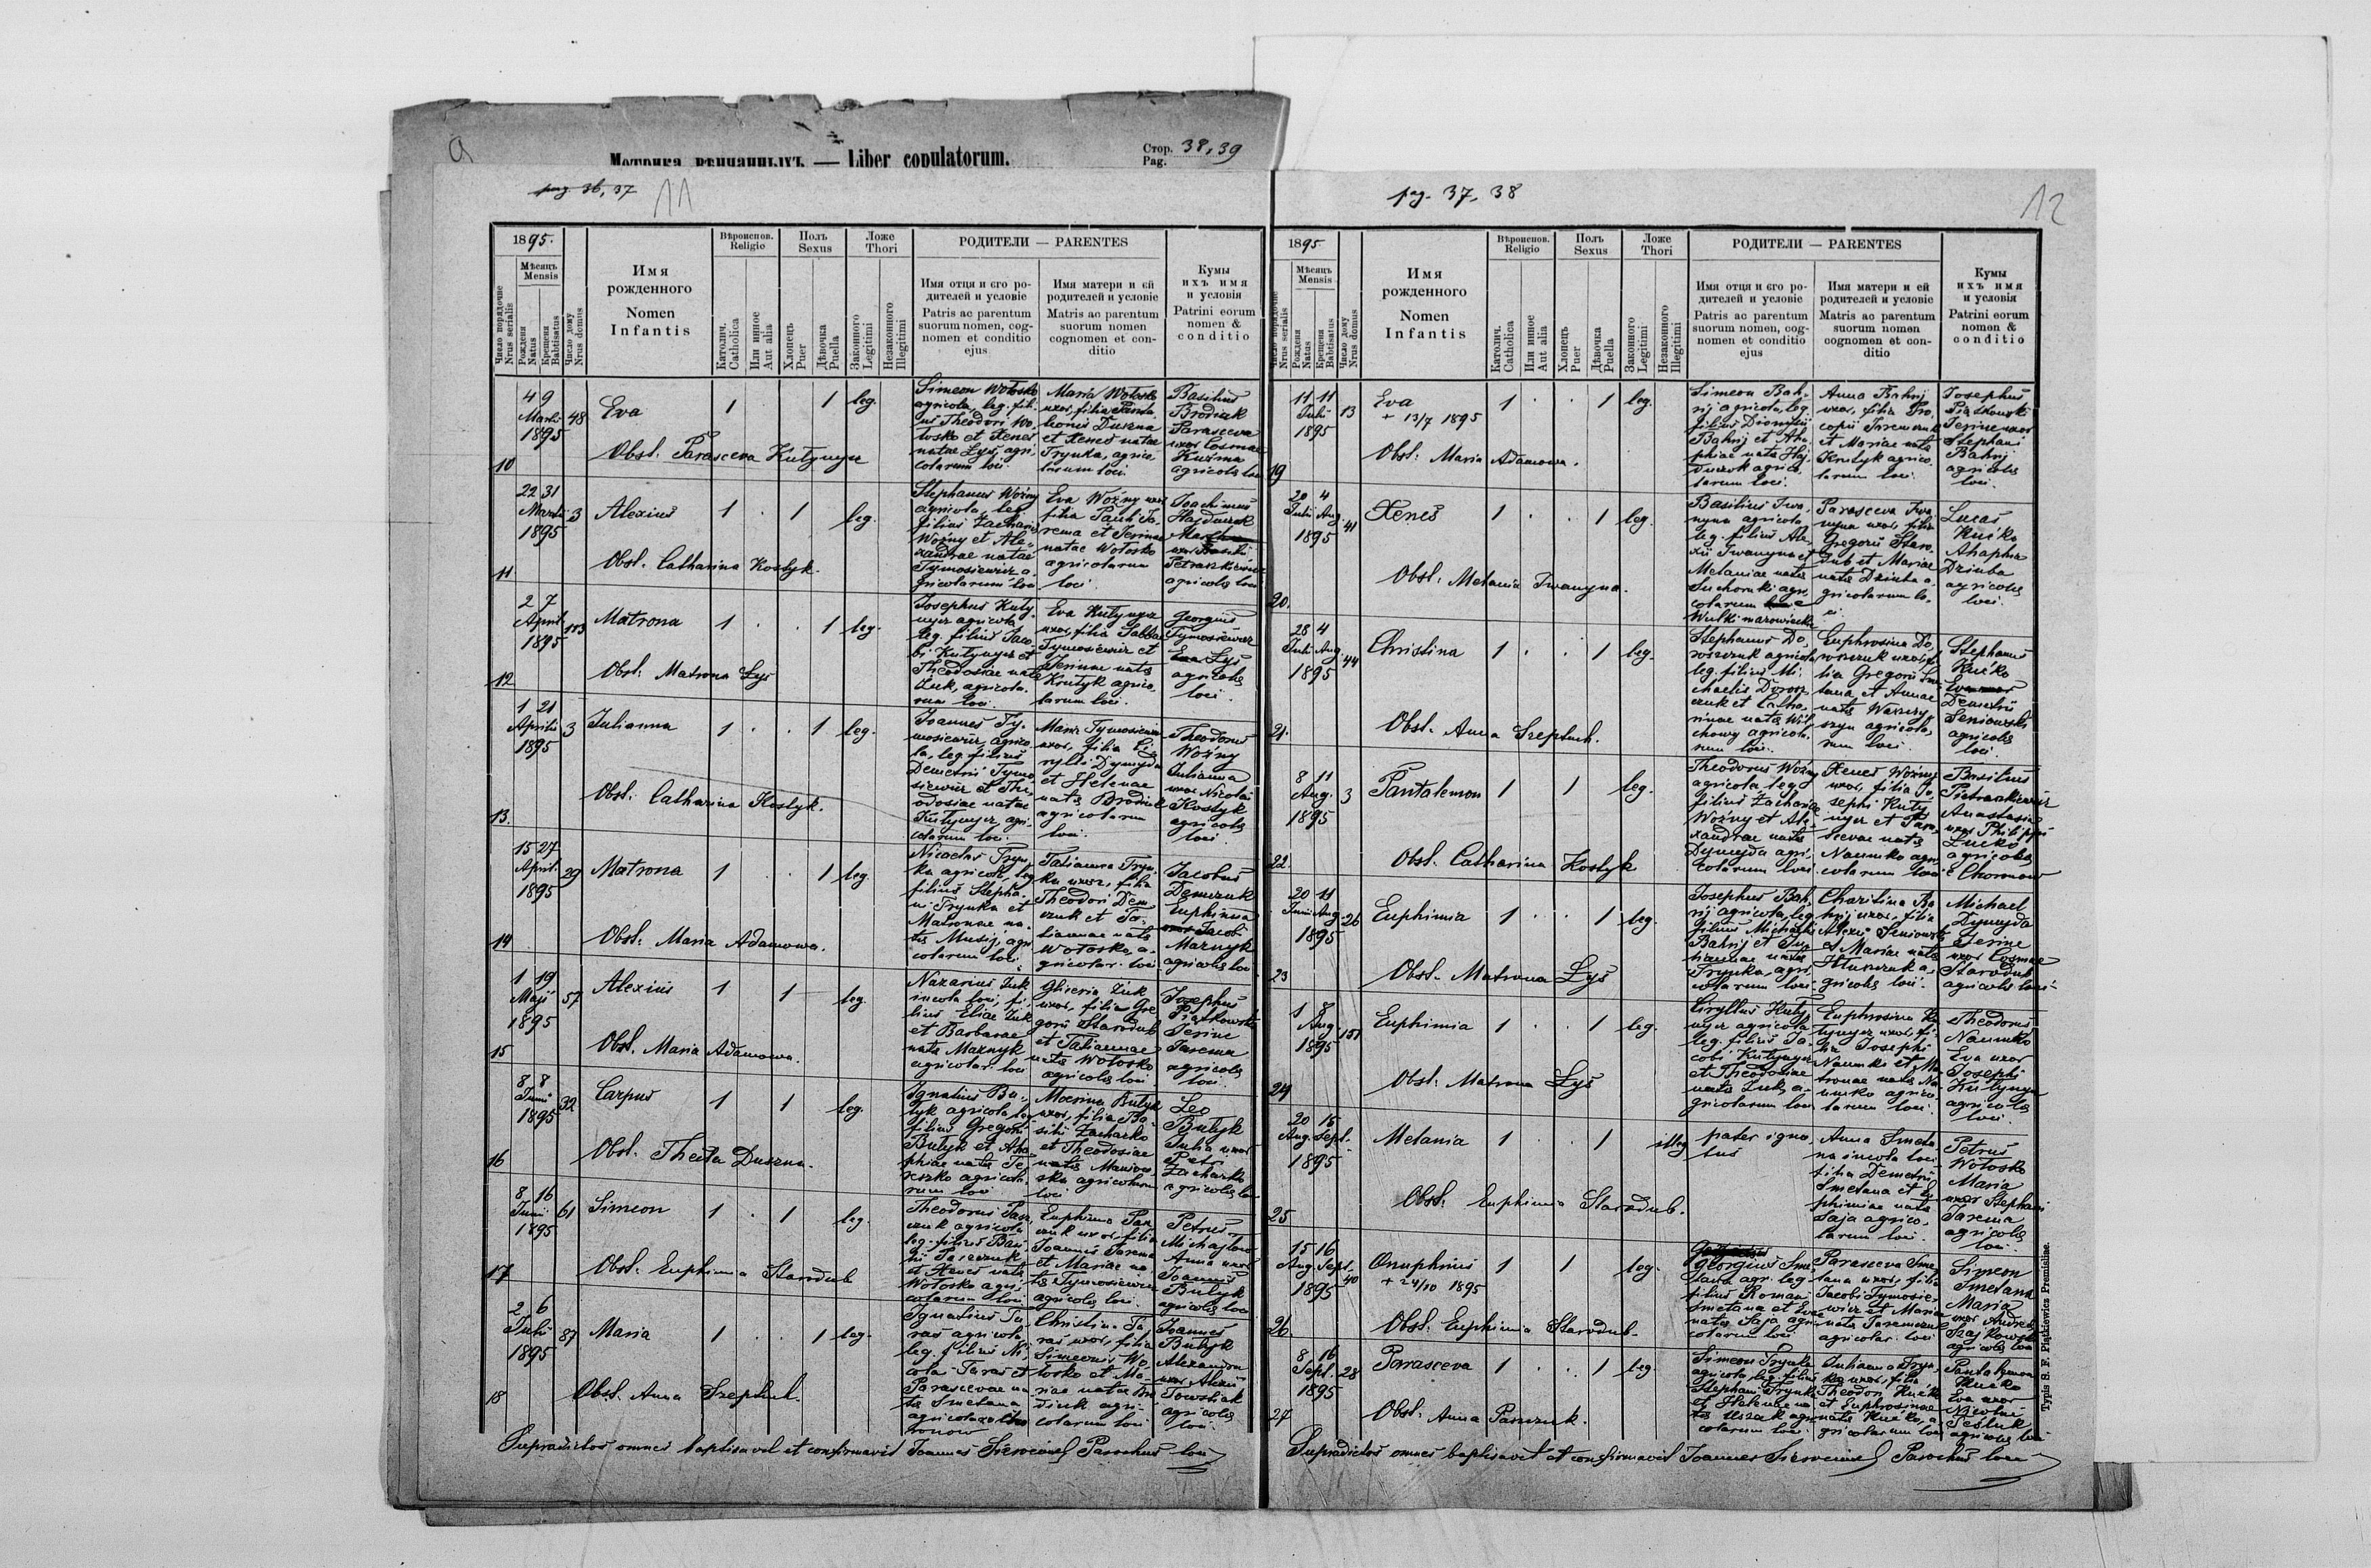 9
Метрика вѣнчанныхъ. — Liber copulatorum.
Стор. Pag. 38, 39
pag 36, 37
11
1895.
Мѣсяцъ
Mensis
Число порядочне
Nrus serialis
Рождения
Natus
Крещения
Babtisatus
Число дому
Nrus domus
Имя
рожденного
Nomen
Infantis
Вѣроиспов.
Religio
Католич.
Catholica
Или инное
Aut alia
Полъ
Sexus
Хлопецъ
Puer
Дѣвочка
Puella
Ложе
Thori
Законного
Legitimi
Незаконного
Illegitimi
РОДИТЕЛИ — PARENTES
Имя отця и єго ро-
дителей и условіе
Patris ac parentum
suorum nomen, cog-
nomen et conditio
ejus
Имя матери и єй
родителей и условіе
Matris ac parentum
suorum nomen
cognomen et con-
ditio
Кумы
ихъ имя
и условія
Patrini eorum
nomen &
conditio
10
4 9
Martii
1895
48
Eva
1 1 leg.
Obst. Parasceva Kutynyer
Simeon Wołosko
agricola, leg. fili-
us Theodori Wo-
łosko et Xenes
natae Łys, agri-
colarum loci
Maria Wołosko
uxor, filia Panta-
leonis Duszna
et Xenes natae
Trynka, agrico-
larum loci
Basilius
Brodiuk
Parasceva
uxor Cosmae
Kuźma
agricolae loci
11
22 31
Martii
1895
3
Alexius
1 . 1 leg.
Obst. Catharina Kostyk.
Stephanus Woźny
agricola, leg.
filius Zachariae
Woźny et Ale-
xandrae natae
Tymosiewicz a-
gricolarum loci
Eva Woźny uxor
filia Pauli Ja-
rema et Jerinae
natae Wołosko
agricolarum
loci
Joachimus
Hajduczok
agricolae loci
12
2 7
April
1895
113
Matrona
1 . . 1 leg.
Obst. Matrona Łys
Josephus Kuty-
nyer agricola
leg. filius Jaco-
bi Kutynyer et
Theodosiae natae
Żuk, agricola-
rum loci.
Eva Kutynyer
uxor, filia Sabbae
Tymosiewicz et
Jerinae natae
Krutyk agrico-
larum loci.
Georgius
Tymosiewicz
Łys
agricolae
loci
13.
1 21
Aprilis
1895
3
Julianna
1 . . 1 leg.
Obst. Catharina Kostyk.
Joannes Ty-
mosiewicz, agrico-
la, leg. filius
Demetrii Tymo-
siewicz et The-
odosiae natae
Kutynyer, agri-
colarum loci.
Maria Tymosiewicz
uxor, filia Ci-
rylli Dymyda
et Helenae
natae Brodiuk
agricolarum
loci.
Theodorus
Woźny
Julianna
uxor Nicolai
Kostyk
agricolae
loci
14
15 27
April.
1895
29
Matrona
1 . . 1 leg.
Obst. Maria Adamowa.
Nicetas Tryn-
ka agricola, leg.
filius Stepha-
ni Trynka et
Matronae na-
tae Musij, agri-
colarum loci
Tatianna Tryn-
ka uxor, filia
Theodori Dem-
czuk et Ta-
tiannae natae
Wołosko, a-
gricolar. loci
Jacobus
Demczuk
Euphimia
uxor Jacobi
Maznyk
agricolae loci
15
1 19
Maji
1895
57
Alexius
1 1 leg.
Obst. Maria Adamowa.
Nazarius Żuk
incola loci, fi-
lius Eliae Żuk
et Barbarae
natae Maznyk
agricolar. loci
Gliceria Żuk
uxor, filia Gre-
gorii Starodub
et Tatiannae
natae Wołosko
agricolae loci
Josephus
Piątkowski
Jerine
Jarema
agricolae
loci.
16
8 8
Junii
1895
32
Carpus
1 1 leg.
Obst. Thecla Duszna.
Ignatius Bu-
tyk agricola leg
filius Gregorii
Butyk et Aha-
phiae natae Te-
reszko agricola-
rum loci
Macrina Butyk
uxor, filia Ba-
silii Zacharko
et Theodosiae
natae Maniow-
ska agricolarum
loci
Leo
Butyk
Julia uxor
Petri
Zacharko
agricolae loci
17
8 16
Junii
1895
61
Simeon
1 . 1 leg.
Obst. Euphimia Starodub
Theodorus Pasz-
czuk agricola
leg. filius Basi-
lii Paszczuk
et Xenes natae
Wołosko agri-
colarum loci
Euphimia Pasz-
czuk uxor, filia
Joannis Jarema
et Mariae na-
tae Tymosiewicz
agricolae loci.
Petrus
Michajłow
Anna uxor
Joannis
Butyk
agricolae loci
18
2 6
Julii
1895
87
Maria
1 . . 1 leg.
Obst. Anna Szeptuch.
Ignatius Ta-
ras agricola
leg. filius Ni-
colai Taras et
Parascevae na-
tae Smetana
Christina Ta-
ras uxor, filia
Simeonis Wo-
łosko et Ma-
riae natae Bro-
diuk agri-
colarum loci
Joannes
Butyk
Alexandra
uxor Alexii
Towstiak
agricolae
loci.
Supradictos omnes baptisavit et confirmavit Joannes Parochus loci
pag. 37, 38
12
1895
Мѣсяцъ
Mensis
Число порядочне
Nrus serialis
Рождения
Natus
Крещения
Babtisatus
Число дому
Nrus domus
Имя
рожденного
Nomen
Infantis
Вѣроиспов.
Religio
Католич.
Catholica
Или инное
Aut alia
Полъ
Sexus
Хлопецъ
Puer
Дѣвочка
Puella
Ложе
Thori
Законного
Legitimi
Незаконного
Illegitimi
РОДИТЕЛИ — PARENTES
Имя отця и єго ро-
дителей и условіе
Patris ac parentum
suorum nomen, cog-
nomen et conditio
ejus
Имя матери и єй
родителей и условіе
Matris ac parentum
suorum nomen
cognomen et con-
ditio
Кумы
ихъ имя
и условія
Patrini eorum
nomen &
conditio
19
11 11
Julii
1895
13
Eva
+ 13/7 1895
1 . . 1 leg.
Obst. Maria Adamowa.
Simeon Bah-
rij agricola, leg.
filius Dionysii
Bahrij et Aha-
phiae natae Haj-
duczok agrico-
larum loci.
Anna Bahrij
uxor, filia Pro-
copii Jaremczuk
et Mariae natae
Krutyk agrico-
larum loci
Josephus
Piątkowski
Jerine uxor
Stephani
Bahrij
agricolae
loci.
20.
20 4
Julii Aug.
1895
41
Xenes
1 . . 1 leg.
Obst. Melania Iwanyna.
Basilius Iwa-
nyna agricola
leg. filius Ale-
xii Iwanyna et
Melaniae natae
Suchorski agri-
colarum
Wulki mazowiecka
Parasceva Iwa-
nyna uxor, filia
Gregorii Staro-
dub et Mariae
natae Dziuba a-
gricolarum lo-
ci.
Lucas
Kućko
Ahaphia
Dziuba
agricolae
loci.
21.
28 4
Julii Aug.
1895
44
Christina
1 . . 1 leg.
Obst. Anna Szeptuch.
Stephanus Do-
roszczuk agricola
leg. filius Mi-
chaelis Dorosz-
czuk et Catha-
rinae natae Wój-
chowy agricola-
rum loci.
Euphrosina Do-
roszczuk uxor, fi-
lia Gregorii Sme-
tana et Annae
natae Waszczy-
szyn agricola-
rum loci.
Stephanus
Kućko
Demetrii
Seniowski
agricolae
loci.
22.
8 11
Aug.
1895
3
Pantalemon
1 1 leg.
Obst. Catharina Kostyk
Theodorus Woźny
agricola leg.
filius Zachariae
Woźny et Ale-
xandrae natae
Dymyda agri-
colarum loci.
Xenes Woźny
uxor, filia Jo-
sephi Kuty-
nyer et Para-
scevae natae
Naumko agri-
colarum loci
Basilius
Pietraszkiewicz
Anastasia
uxor Philippi
Łućko
agricolae
23
20 11
Junii Aug.
1895
26
Euphimia
1 . . 1 leg.
Obst. Matrona Łys
Josephus Bah-
rij agricola, leg.
filius Michaelis
Bahrij et Ju-
liannae natae
Trynka, agri-
colarum loci.
Charitina Ba-
hrij uxor, filia
Alexii Seniowski
et Mariae natae
a-
gricolae loci.
Michael
Dymyda
Jerine
uxor Cosmae
Starodub
agricolae loci.
24
1 8
Aug.
1895
151
Euphimia
1 . . 1 leg.
Obst. Matrona Łys
Ciryllus Kuty-
nyer agricola
leg. filius Ja-
cobi Kutynyer
et Theodosiae
natae Żuk, a-
gricolarum loci
Euphrosina Ku-
tynyer uxor, fi-
lia Josephi
Naumko et Ma-
tronae natae Na-
umko agrico-
larum loci.
Theodorus
Naumko
Eva uxor
Josephi
Kutynyer
agricolae
loci.
25
20 16
Aug. Sept.
1895
Melania
1 . . 1 illeg
Obst. Euphimia Starodub.
pater igno-
tus
Anna Smeta-
na incola loci
filia Demetrii
Smetana et Eu-
phimiae natae
Saja agrico-
larum loci.
Petrus
Wołosko
Maria
uxor Stephani
Jarema
agricolae
loci.
26
15 16
Aug. Sept.
1895
40
Onuphrius
+ 24/10 1895
1 1 leg.
Obst. Euphimia Starodub.
Georgius Sme-
tana agr. leg.
filius Romani
Smetana et Evae
natae Saja agri-
colarum loci
Parasceva Sme-
tana uxor, filia
Jacobi Tymosie-
wicz et Mariae
natae Jaremczuk
agricolar. loci
Simeon
Smetana
Maria
uxor Andreae
Szajkowski
agricolae loci
27
8 16
Sept.
1895
28
Parasceva
1 . . 1 leg.
Obst. Anna Paszczuk.
Simeon Trynka
agricola, leg. filius
Stephani Trynka
et Helenae na-
tae agri-
colarum loci.
Julianna Tryn-
ka uxor, filia
Theodori Kućko
et Euphrosinae
natae Kućko, a-
gricolarum loci
Pantalemon
Kućko
Eva uxor
Nicolai
agricolae loci
Supradictos omnes baptisavit et confirmavit Joannes Parochus loci
Typis S. F. Piątkiewicz Premisliae.